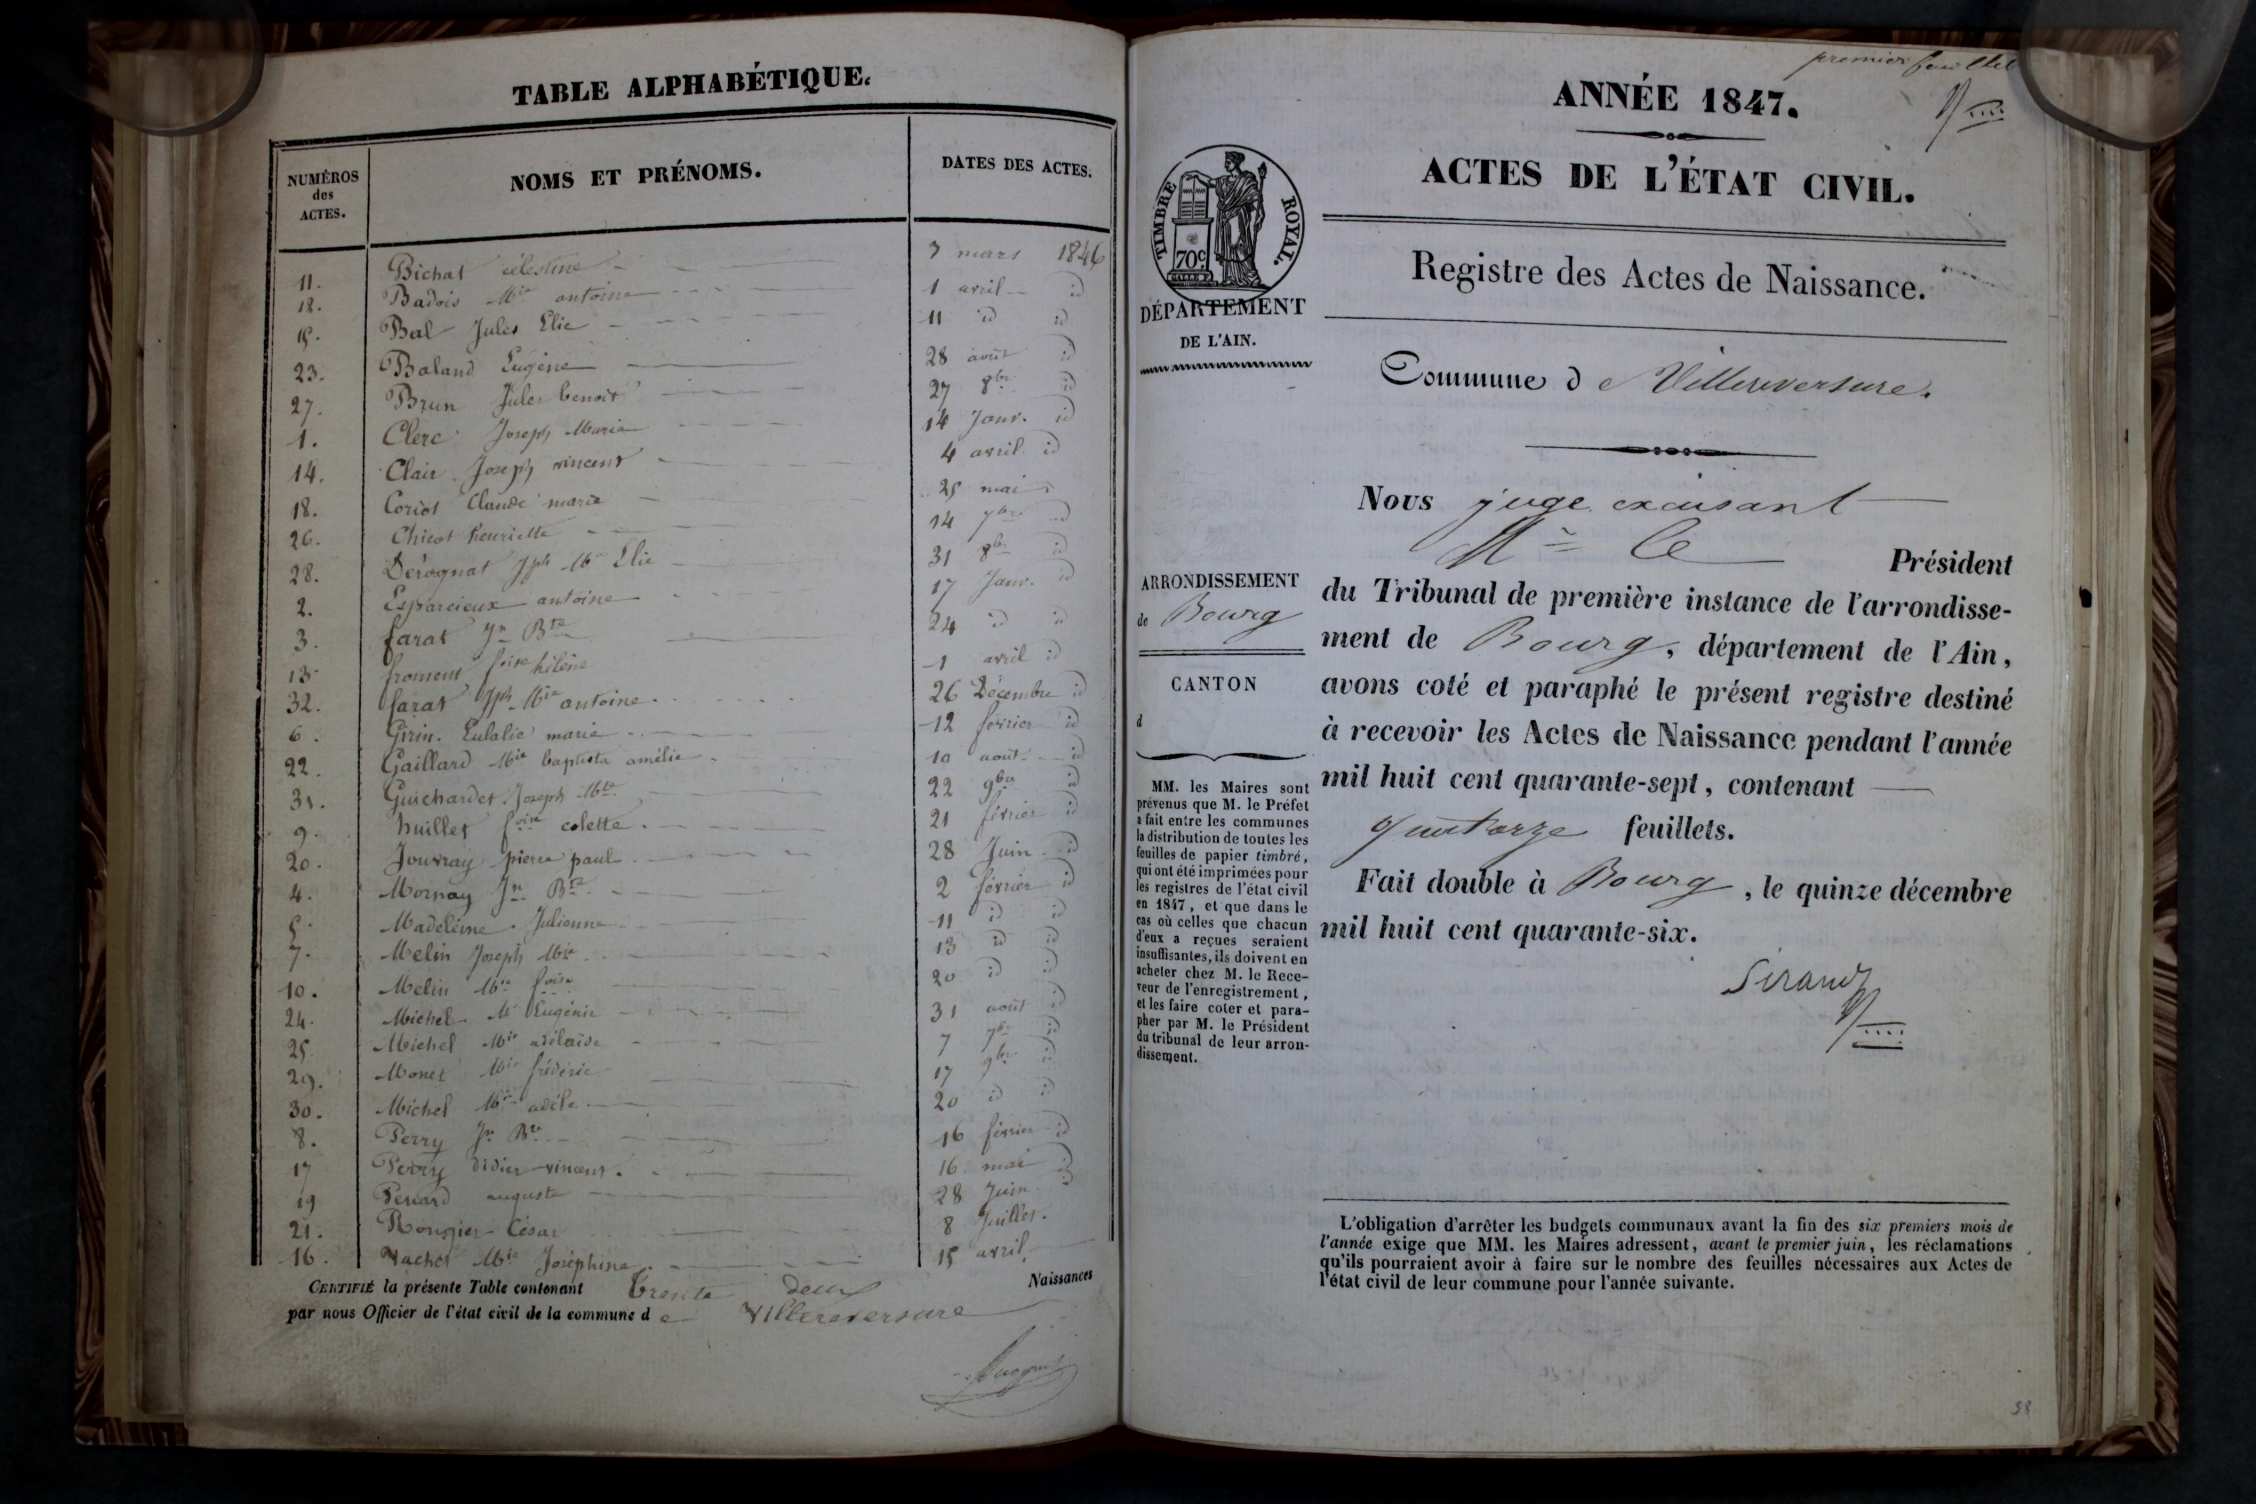 TABLE ALPHABÉTIQUE.
NUMÉROS des ACTES. NOMS ET PRÉNOMS. DATES DES ACTES.
11. Bichat célestine 3 mars 1846
12. Badois Mie antoine 1 avril id
15. Bal Jules Elie 11 id id
23. Baland Eugène 28 août id
27. Brun Jules benoit 27 8bre id
1. Clerc Joseph Marie 14 Janv. id
14. Clair Joseph vincent 4 avril id
18. Coriot Claude marie 25 mai
26. Chicot henriette 14 7bre id
28. Dérognat Jph Mie Elie 31 8bre id
2. Esparcieux antoine 17 Janv. id
3. farat Jn Bte 24 id id
13. froment foise hélène 1 avril id
32. farat Jph Mie antoine 26 Décembre id
6. Girin Eulalie marie 12 février id
22. Gaillard Mie baptista amélie 10 août id
31. Guichardet Joseph Mie 22 9bre id
9. huillet foise colette 21 février id
20. Jouvray pierre paul 28 Juin id
4. Mornay Jn Bte 2 février id
5. Madeleine Julienne 11 id id
7. Melin Joseph Mie 13 id id
10. Melin Mie foise 20 id id
24. Michel Mie Eugénie 31 août id
25. Michel Mie adélaïde 7 7bre id
29. Monet Mie frédéric 17 9bre id
30. Michel Mie adèle 20 id id
8. Perry Jn Bte 16 février id
17 Perry Didier vincent. 16 mai id
19 Penard auguste 28 Juin id
21. Rougier César 8 Juillet.
16. Vachet Mie Joséphine 15 avril
CERTIFIÉ la présente Table contenant Trente deux Naissances
par nous Officier de l'état civil de la commune d e Villereversure
premier feuillet
ANNÉE 1847.
ACTES DE L'ÉTAT CIVIL.
TIMBRE ROYAL.
70c
DÉPARTEMENT
DE L'AIN.
Registre des Actes de Naissance.
Commune d e Villereversure.
Nous juge excusant
Mr Le Président
du Tribunal de première instance de l'arrondisse-
ment de Bourg, département de l'Ain,
avons coté et paraphé le présent registre destiné
à recevoir les Actes de Naissance pendant l'année
mil huit cent quarante-sept, contenant
quatorze feuillets.
Fait double à Bourg, le quinze décembre
mil huit cent quarante-six.
Sirand
ARRONDISSEMENT
de Bourg
CANTON
d
MM. les Maires sont
prévenus que M. le Préfet
a fait entre les communes
la distribution de toutes les
feuilles de papier timbré,
qui ont été imprimées pour
les registres de l'état civil
en 1847, et que dans le
cas où celles que chacun
d'eux a reçues seraient
insuffisantes, ils doivent en
acheter chez M. le Rece-
veur de l'enregistrement,
et les faire coter et para-
pher par M. le Président
du tribunal de leur arron-
dissement.
L'obligation d'arrêter les budgets communaux avant la fin des six premiers mois de
l'année exige que MM. les Maires adressent, avant le premier juin, les réclamations
qu'ils pourraient avoir à faire sur le nombre des feuilles nécessaires aux Actes de
l'état civil de leur commune pour l'année suivante.